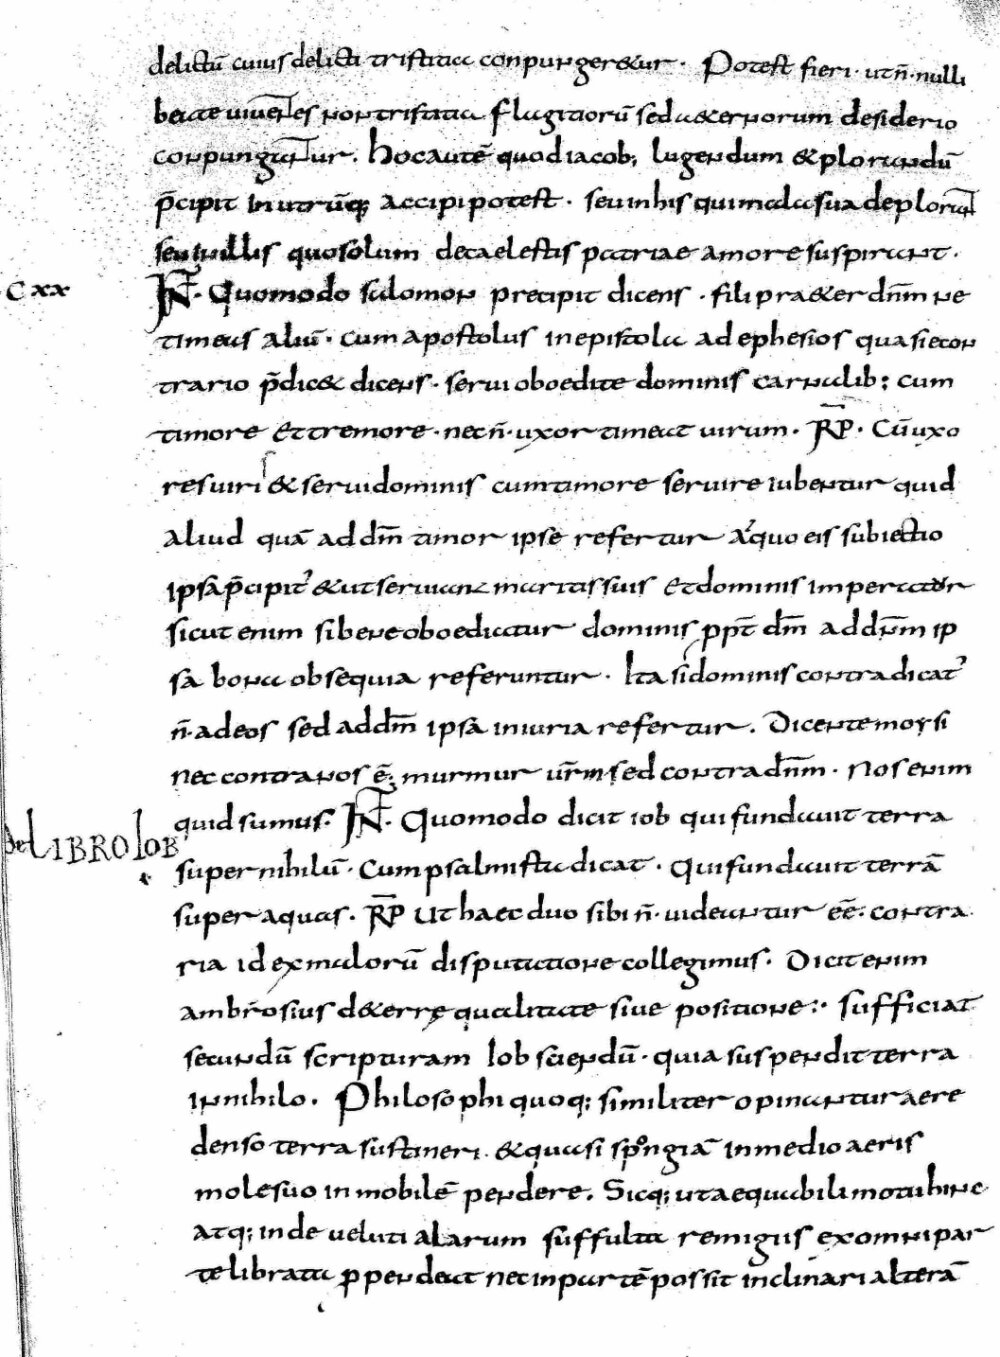 delictū cuius delicti tristitia conpungeretur. Potest fieri. ut n̄. nulli
beate viventes non tristitia flagitiorū sed aeternorum desiderio
conpungantur. hoc autē quod iacob; lugendum & plorandū
p̄cipit in utrūq; accipi potest. seu in his qui mala sua deplorant
seu in illis quos olum de caelestis patriae amore suspirant.
C xx
INT. Quomodo salomon precipit dicens. fili praeter dn̄m ne
timeas aliū. cum apostolus in epistola ad ephesios quasi e con
trario p̄dic& dicens. servi oboedite dominis carnalib; cum
timore et tremore. nec n̄. uxor timeat virum. R̄P. Cū uxo
res viri & servi dominis cum timore servire iubentur quid
aliud quā ad dm̄ timor ipse refertur a quo eis subiectio
ipsa p̄cipit' & ut serviant maritis suis et dominis imperator
sicut enim si bene oboediatur dominis ppt̄ dm̄ ad dn̄m ip
sā bona obsequia referuntur. Ita si dominis contradicat'
n̄. ad eos sed ad dm̄ ipsā iniuria refertur. Dicente moysi
nec contra nos ē. murmur ur̄m. sed contra dn̄m. Nos enim
quid sumus.' INT. Quomodo dicit iob qui fundavit terra
De LIBRO IOB
super nihilū. Cum psalmista dicat. Qui fundavit terrā
super aquas. R̄P Ut haec duo sibi n̄. videantur eē. contra
ria id ex malorū disputatione collegimus. Dicit enim
ambrosius de terre qualitate sive positione:. sufficiat
secundū scripturam Iob sciendū. quia suspendit terra
in nihilo. Philosophi quoq; similiter opinantur aere
denso terra sustineri. & quasi spongiā in medio aeris
mole suo inmobilē pendere. Sicq; ut aequabili motu hinc
atq; inde veluti alarum suffulta remigiis ex omni par
te librata ppendeat nec in partē possit inclinari alterā